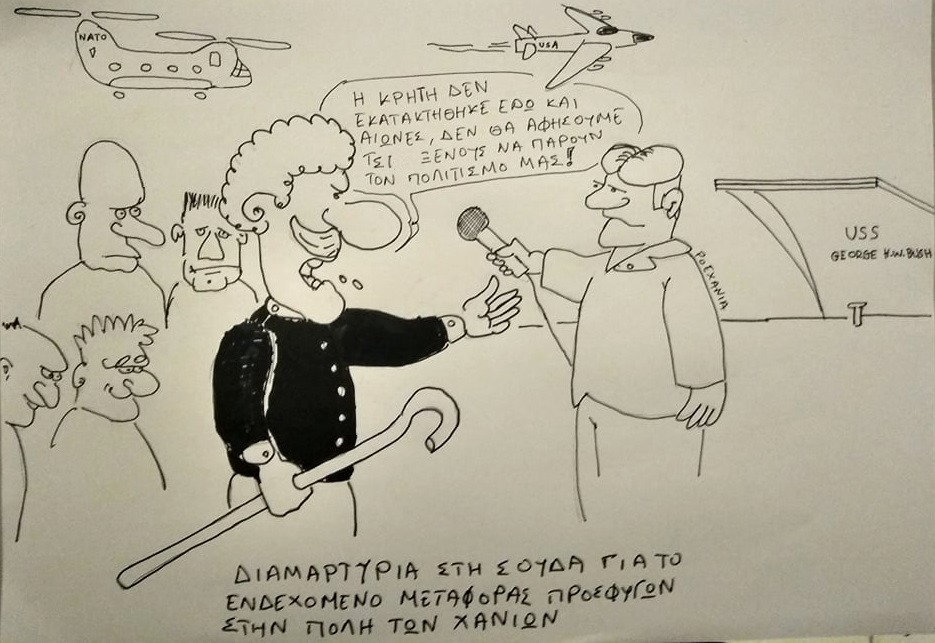 NATO
USA
Η ΚΡΗΤΗ ΔΕΝ
ΕΚΑΤΑΚΤΗΘΗΚΕ ΕΔΩ ΚΑΙ
ΑΙΩΝΕΣ, ΔΕΝ ΘΑ ΑΦΗΣΟΥΜΕ
ΤΣΙ ΞΕΝΟΥΣ ΝΑ ΠΑΡΟΥΝ
ΤΟΝ ΠΟΛΙΤΙΣΜΟ ΜΑΣ!
USS
GEORGE H.W. BUSH
ΡΟΕΧΑΝΙΑ
ΔΙΑΜΑΡΤΥΡΙΑ ΣΤΗ ΣΟΥΔΑ ΓΙΑ ΤΟ
ΕΝΔΕΧΟΜΕΝΟ ΜΕΤΑΦΟΡΑΣ ΠΡΟΣΦΥΓΩΝ
ΣΤΗΝ ΠΟΛΗ ΤΩΝ ΧΑΝΙΩΝ